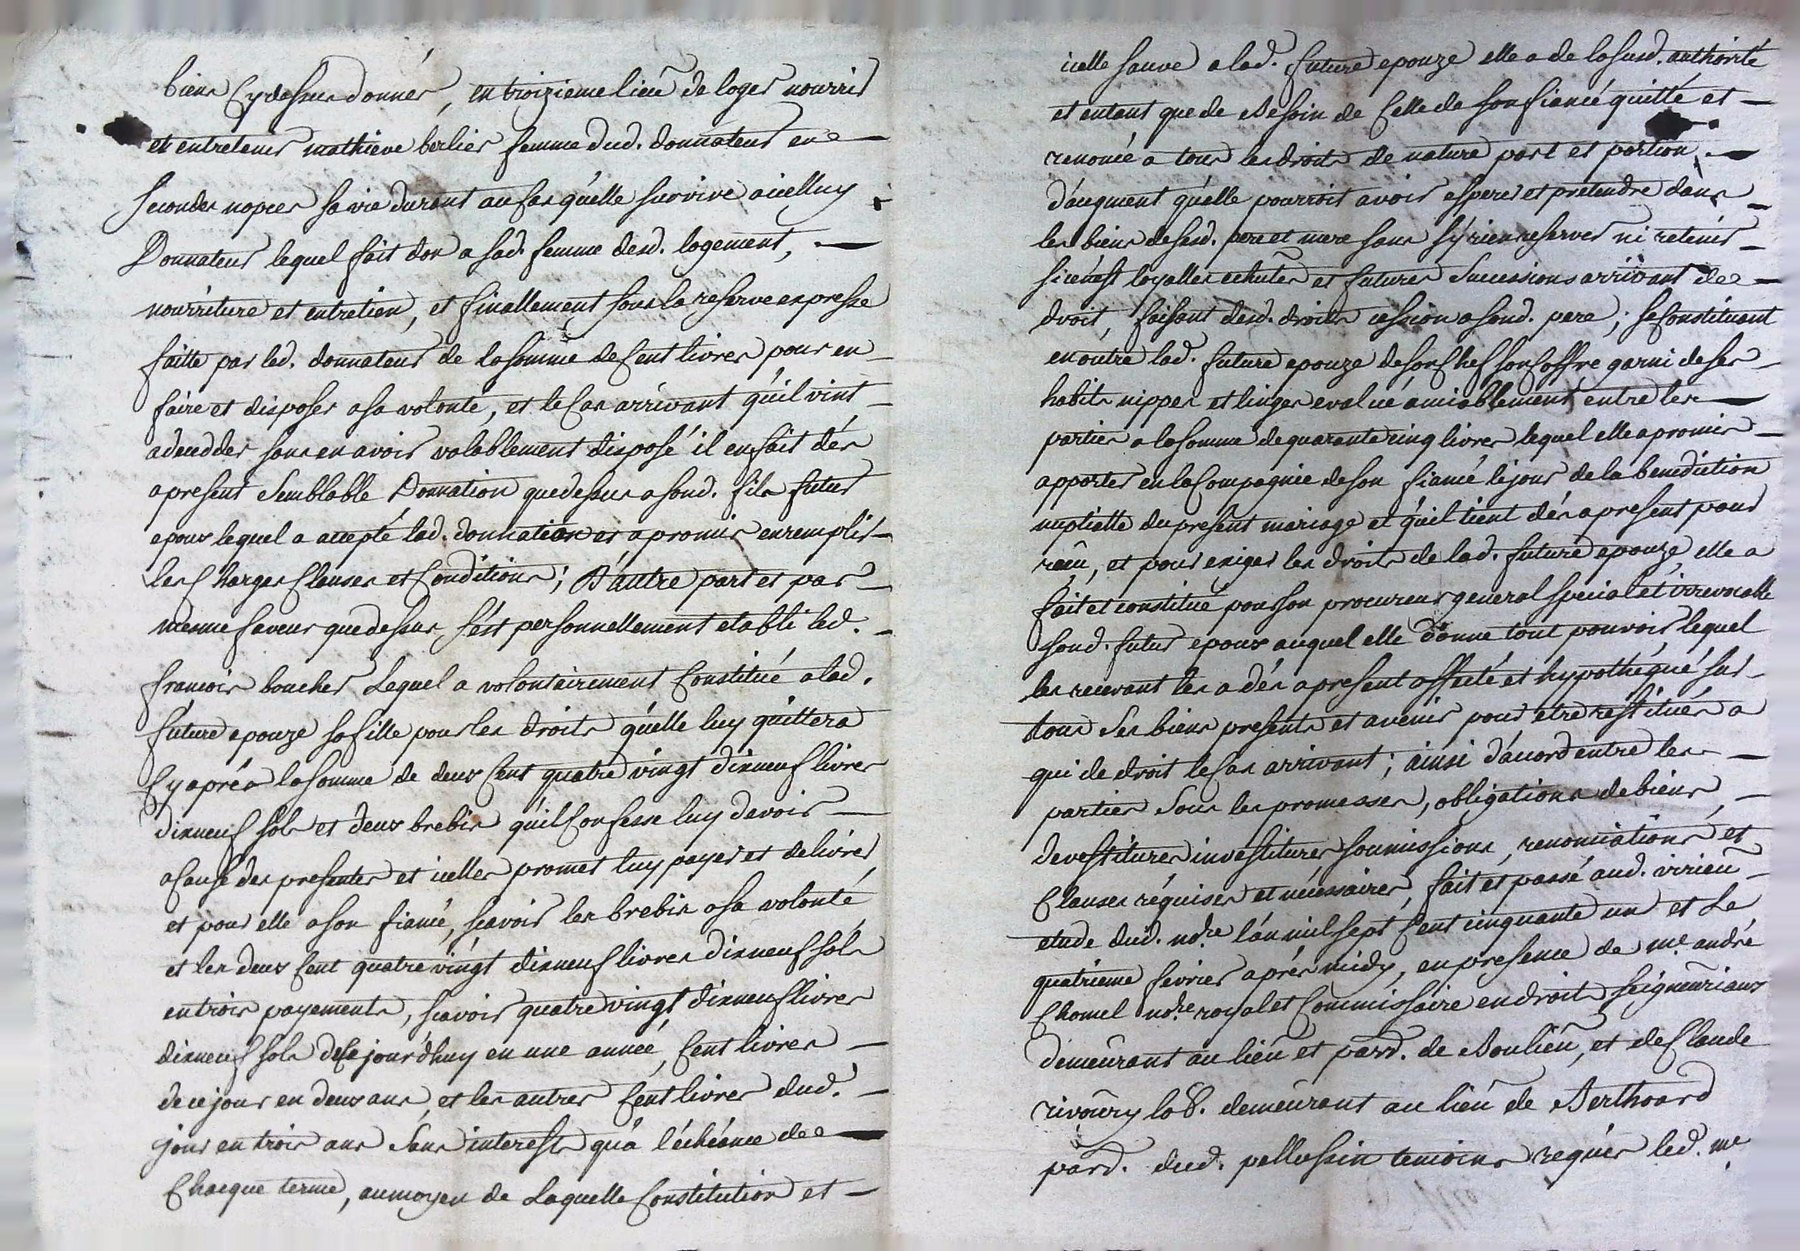 biens cydessus donnés, en troizieme lieu de loger nourrir
et entretenir mathieve berlier femme dud. donnateur en
secondes nopces sa vie durant au cas qu'elle survive a icelluy
Donnateur lequel fait don a sad. femme desd. logement,
nourriture et entretien, et finallement sous la reserve expresse
faitte par led. donnateur de la somme de Cent livres pour en
faire et disposer a sa volonté, et le Cas arrivant qu'il vint
a decedder sans en avoir valablement disposé il en fait dés
a present Semblable Donnation que dessus a sond. fils futur
epoux lequel a accepté lad. donnation et a promis en remplir
les Charges Clauses et Conditions; D'autre part et par
mesme faveur que dessus, s'est personnellement etabli led.
francois boucher Lequel a volontairement Constitué a lad.
future epouze sa fille pour les droits qu'elle luy quittera
Cy aprés la somme de deux Cent quatre vingt dixneuf livres
dixneuf sols et deux brebis qu'il Confesse luy devoir
a Cause des presentes et icelles promet luy payer et delivrer
et pour elle a son fiancé, scavoir les brebis a sa volonté
et les deux Cent quatre vingt dixneuf livres dixneuf sols
en trois payements, scavoir quatre vingt dixneuf livres
dixneuf sols de Ce jourd'huy en une année, Cent livres
de ce jour en deux ans, et les autres Cent livres dud.
jour en trois ans Sans interests qu'a l'échéance de
Chacque terme, au moyen de Laquelle Constitution et
icelle sauve a lad. future epouze elle a de la susd. authorité
et entant que de Besoin de Celle de son fiancé quitté et
renoncé a tous les droits de nature part et portion
d'augment qu'elle pourroit avoir esperer et pretendre dans
les biens desd. pere et mere sans s'y rien reserver ni retenir
si cen'est loyalles echutes et futures Successions arrivant de
droit, faisant desd. droits cession a sond. pere; se Constituant
en outre lad. future epouze de son Chef son Coffre garni de ses
habits nippes et linges evalué amiablement entre les
parties a la somme de quarante cinq livres lequel elle a promis
apporter en la Compagnie de son fiancé le jour de la benediction
nuptialle du present mariage et qu'il tient dés a present pour
recu, et pour exiger les droits de lad. future epouze, elle a
fait et constitué pour son procureur general special et irrevocable
sond. futur epoux auquel elle donne tout pouvoir lequel
les recevant les a dés a present affecté et hypothéqué sur
tous Ses biens presents et avenir pour etre restitués a
qui de droit le Cas arrivant; ainsi d'acord entre les
parties Sous les promesses, obligations de biens,
devestitures investitures soumissions, renonciations et
Clauses réquises et nécessaires, fait et passé aud. virieu
etude dud. nore. l'an mil sept Cent cinquante un et Le
quatrieme fevrier aprés midy, en presence de me. andré
Chomel nore. royal et Commissaire en droits seigneuriaux
demeurant au lieu et parr. de Boulieu, et de Claude
rivoiry lab. demeurant au lieu de Berthoard
parr. dud. pellussin temoins requis led. me